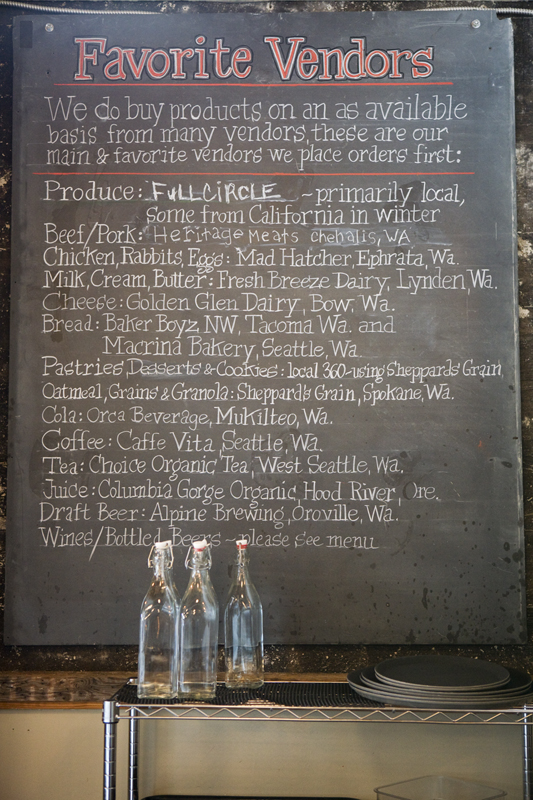 Favorite Vendors
We do buy products on an as available
basis from many vendors, these are our
main & favorite vendors we place orders first:
Produce: FULLCIRCLE ~primarily local,
some from California in winter
Beef/Pork: Heritage Meats chehalis, WA
Chicken, Rabbits, Eggs: Mad Hatcher, Ephrata, Wa.
Milk, Cream, Butter: Fresh Breeze Dairy, Lynden, Wa.
Cheese: Golden Glen Dairy, Bow, Wa.
Bread: Baker Boyz, NW, Tacoma Wa. and
Macrina Bakery, Seattle, Wa.
Pastries, Desserts & Cookies: local 360~using Sheppards Grain
Oatmeal, Grains & Granola: Sheppard's Grain, Spokane, Wa.
Cola: Orca Beverage, Mukilteo, Wa.
Coffee: Caffe Vita, Seattle, Wa.
Tea: Choice Organic Tea, West Seattle, Wa.
Juice: Columbia Gorge Organic, Hood River, Ore.
Draft Beer: Alpine Brewing, Oroville, Wa.
Wines/Bottled Beers ~ please see menu